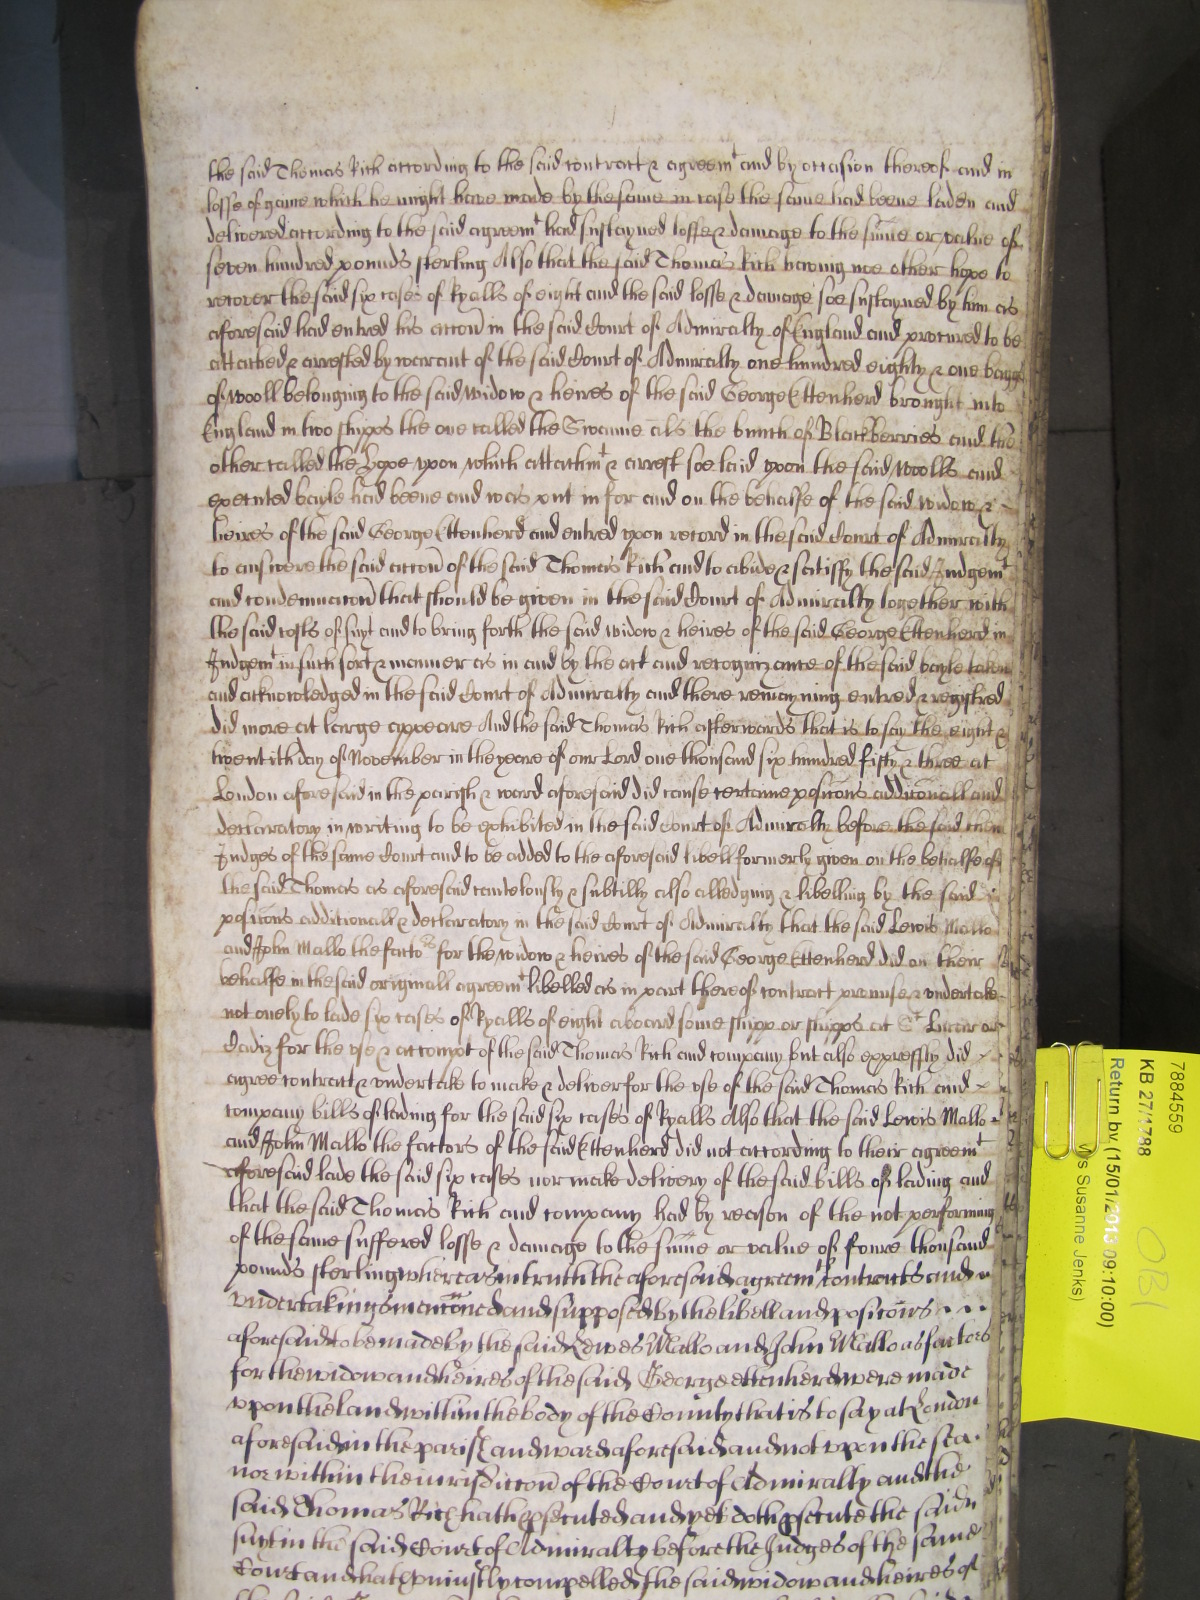 the said Thomas Rich according to the said contract & agreemt and by occasion thereof and in
losse of gaine which he might have made by the same in case the same had beene laden and
delivered according to the said agreemt had susteyned losse & damage to the sume or value of
seven hundred pounds sterling Also that the said Thomas Rich having noe other hope to
recover the said six cases of Ryalls of eight and the said losse & damage soe susteyned by him as
aforesaid had entred his accon in the said Court of Admiralty of England and procured to be
attached & arrested by warrant of the said Court of Admiralty one hundred eighty & one baggs
of wooll belonging to the said widow & heires of the said George Ettenherd brought into
England in two shipps the one called the Swanne als the bunch of Blackberries and the
other called the Hope upon which attachmt & arrest soe laid upon the said Woolls and
executed bayle had beene and was put in for and on the behalfe of the said widow &
heires of the said George Ettenherd and entred upon record in the said Court of Admiralty
to answere the said accon of the said Thomas Rich and to abide & satisfy the said Judgemt
and condemnacon that should be given in the said Court of Admiralty together with
the said costs of suyt and to bring forth the said widow & heires of the said George Ettenherd in
Judgemt in such sort & manner as in and by the act and recognizance of the said bayle taken
and acknowledged in the said Court of Admiralty and there remayning entred & registred
did more at large appeare And the said Thomas Rich afterwards that is to say the eight &
twentith day of November in the yeare of our Lord one thousand six hundred fifty & three at
London aforesaid in the parish & ward aforesaid did cause certaine posicons addiconall and
declaratory in writing to be exhibited in the said Court of Admiralty before the said then
Judges of the same Court and to be added to the aforesaid libell formerly given on the behalfe of
the said Thomas as aforesaid cautelously & subtilly also alledging & libelling by the said
posicons additionall & declaratory in the said Court of Admiralty that the said Lewis Mallo
and John Mallo the factors for the widow & heires of the said George Ettenherd did on their
behalfe in the said originall agreemt libelled as in part thereof contract promise & undertake
not onely to lade six cases of Ryalls of eight aboard some shipp or shipps at St Lucar or
Cadiz for the use & accompt of the said Thomas Rich and company but also expressly did
agree contract & undertake to make & deliver for the use of the said Thomas Rich and
company bills of lading for the said six cases of Ryalls Also that the said Lewis Mallo
and John Mallo the factors of the said Ettenherd did not according to their agreemt
aforesaid lade the said six cases nor make delivery of the said bills of lading and
that the said Thomas Rich and company had by reason of the not performing
of the same suffered losse & damage to the sume or value of foure thousand
pounds sterling whereas in truth the aforesaid agreemt contracts and
undertakings menconed and supposed by the libell and posicons
aforesaid to be made by the said Lewes Mallo and John Mallo as factors
for the widow and heires of the said George Ettenherd were made
upon the land within the body of the County that is to say at London
aforesaid in the parish and ward aforesaid and not upon the sea
nor within the iurisdiccon of the Court of Admiralty and the
said Thomas Rich hath psecuted and yet doth psecute the said
suyt in the said Court of Admiralty before the Judges of the same
Court and hath uniustly compelled the said widow and heires of
7884559
KB 27/1788
Return by (15/01/2013 09:10:00)
Ms Susanne Jenks)
OBI